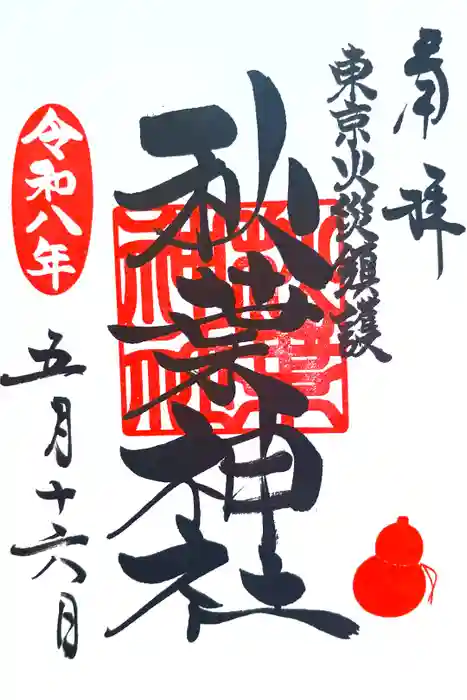 奉拝
東京火災鎮護
秋葉神社
令和八年
五月十六日